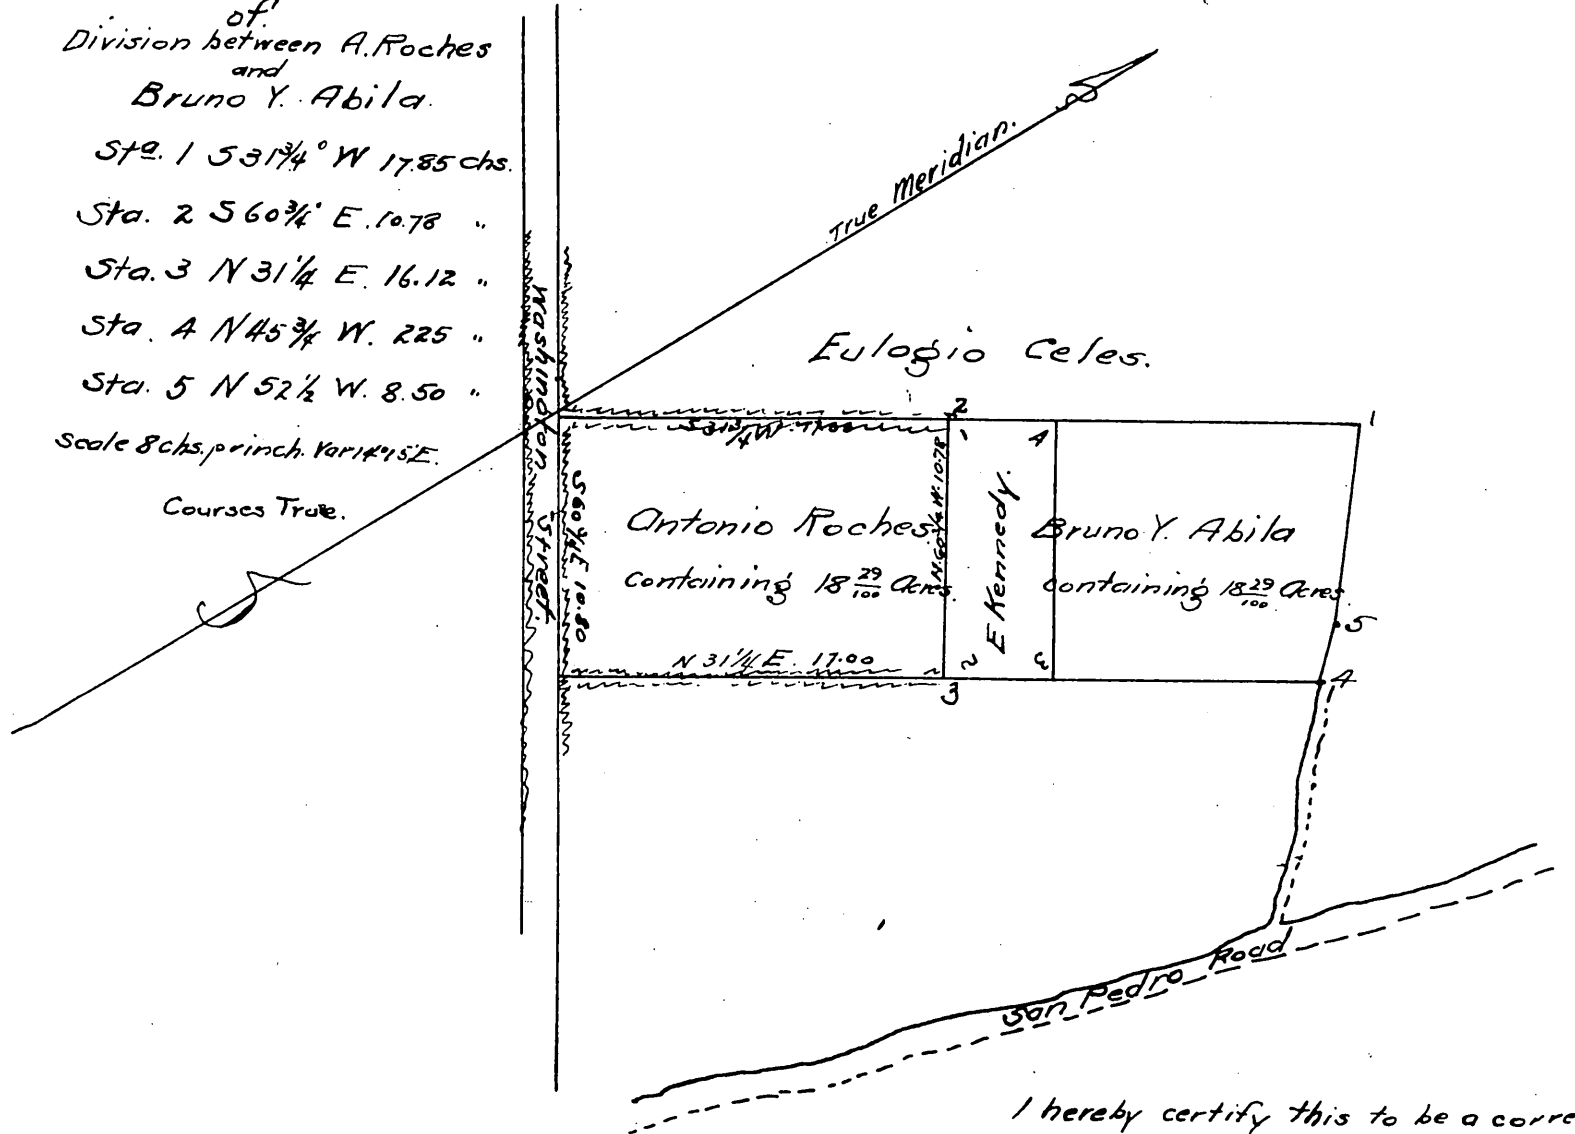 of
Division between A. Roches
and
Bruno Y. Abila.
Sta. 1 S 31¾° W 17.85 chs.
Sta. 2 S 60¾° E. 10.78 "
Sta. 3 N 31¼ E. 16.12 "
Sta. 4 N 45¾ W. 225 "
Sta. 5 N 52½ W. 8.50 "
Scale 8 chs. pr inch. Var 14°15' E.
Courses True.
True Meridian.
Washington Street.
Eulogio Celes.
2
1
S 31¾ W. 17.00
1
4
S 60¼ E 10.80
Antonio Roches
containing 18 29/100 Acres.
N. 60¼ W. 10.78
E Kennedy.
Bruno Y. Abila
containing 18 29/100 Acres.
5
N 31¼ E. 17.00
2
3
3
4
San Pedro Road
I hereby certify this to be a corre